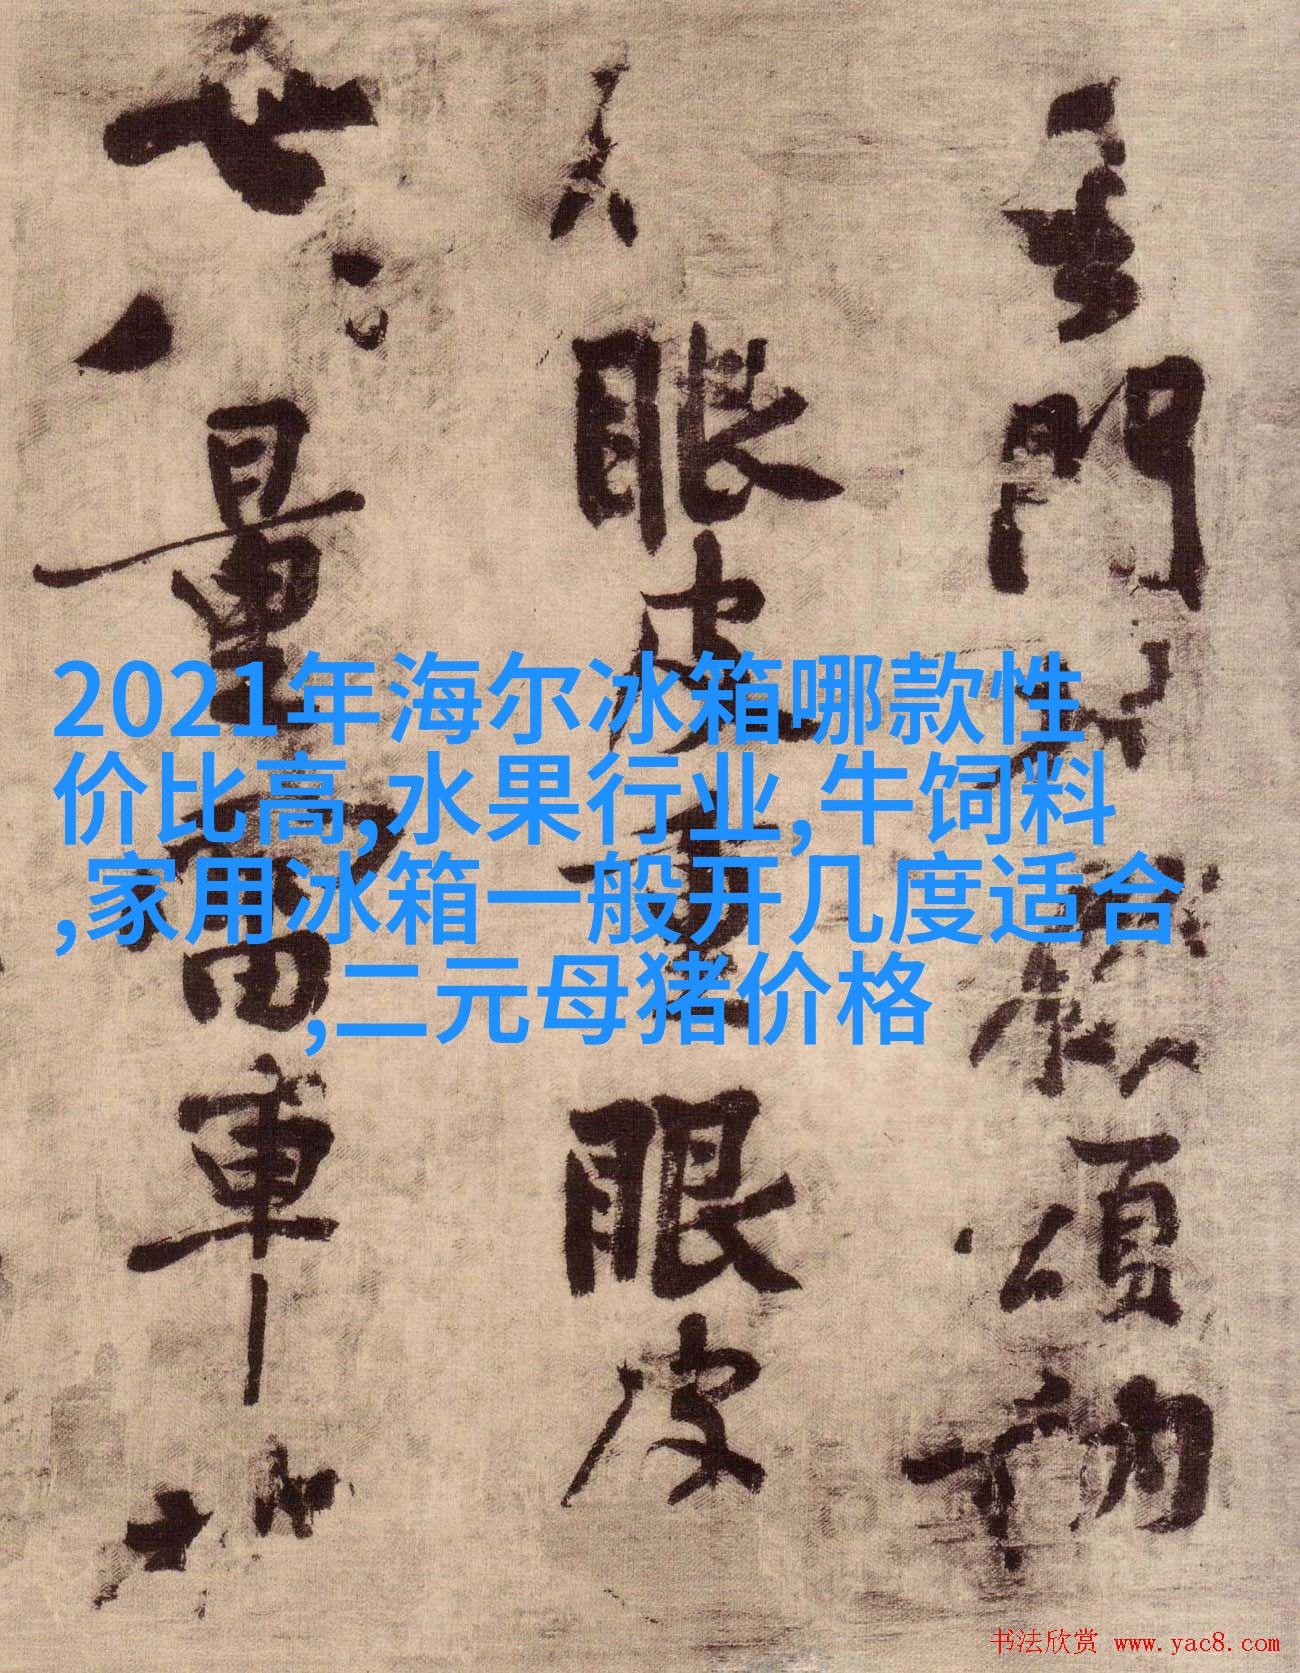 2021年海尔冰箱哪款性
价比高,水果行业,牛饲料
,家用冰箱一般开几度适合
,二元母猪价格
門
頌
訥
眼
皮
重
眼
皮
世
八
量
雷
車
书法欣赏 www.yac8.com